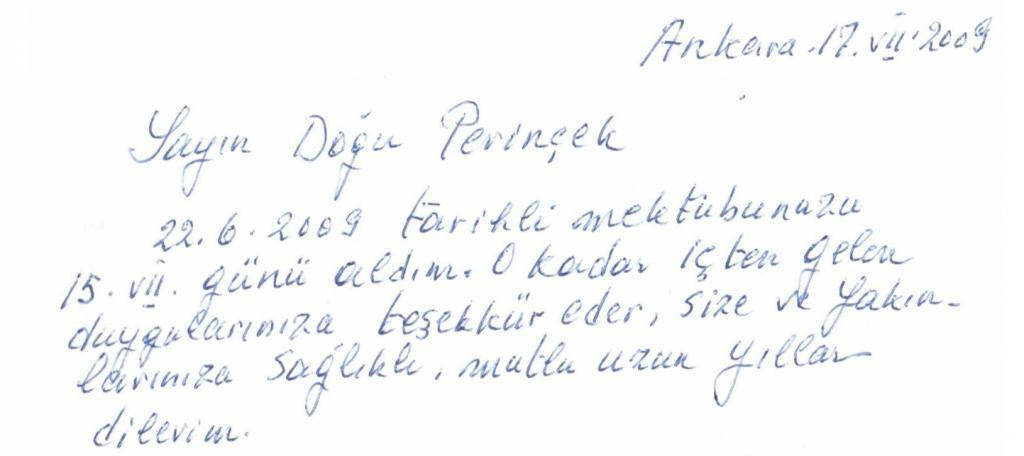 Ankara. 17. VII. 2009
Sayın Doğu Perinçek
22.6.2009 tarihli mektubunuzu
15. VII. günü aldım. O kadar içten gelen
duygularınıza teşekkür eder, size ve yakın-
larınıza sağlıklı, mutlu uzun yıllar
dilerim.